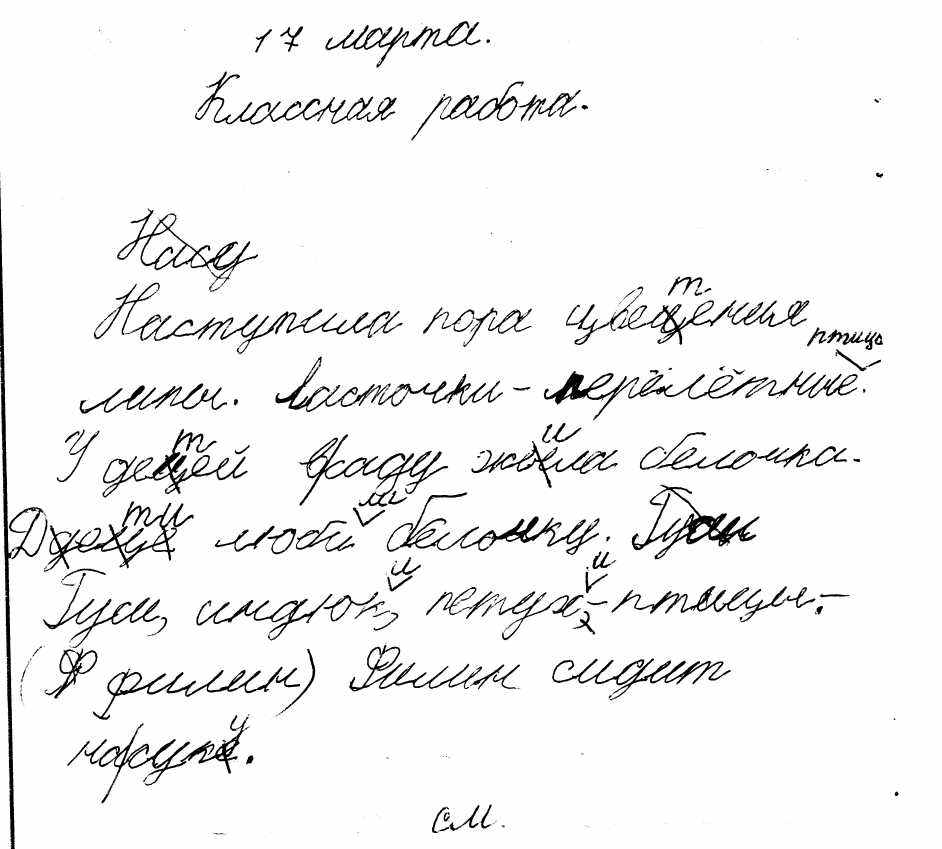 17 марта.
Классная работа.
Насу
Наступила пора цвецения
т
птицы
липы. Ласточки - перелётные.
У децей враду жыла белочка.
т и
Д деце люби белочку. Гуси
ти ш
Гуси, индюк, петух - птицы. -
и и
(Ф филин) Филин сидит
насуке.
у
см.